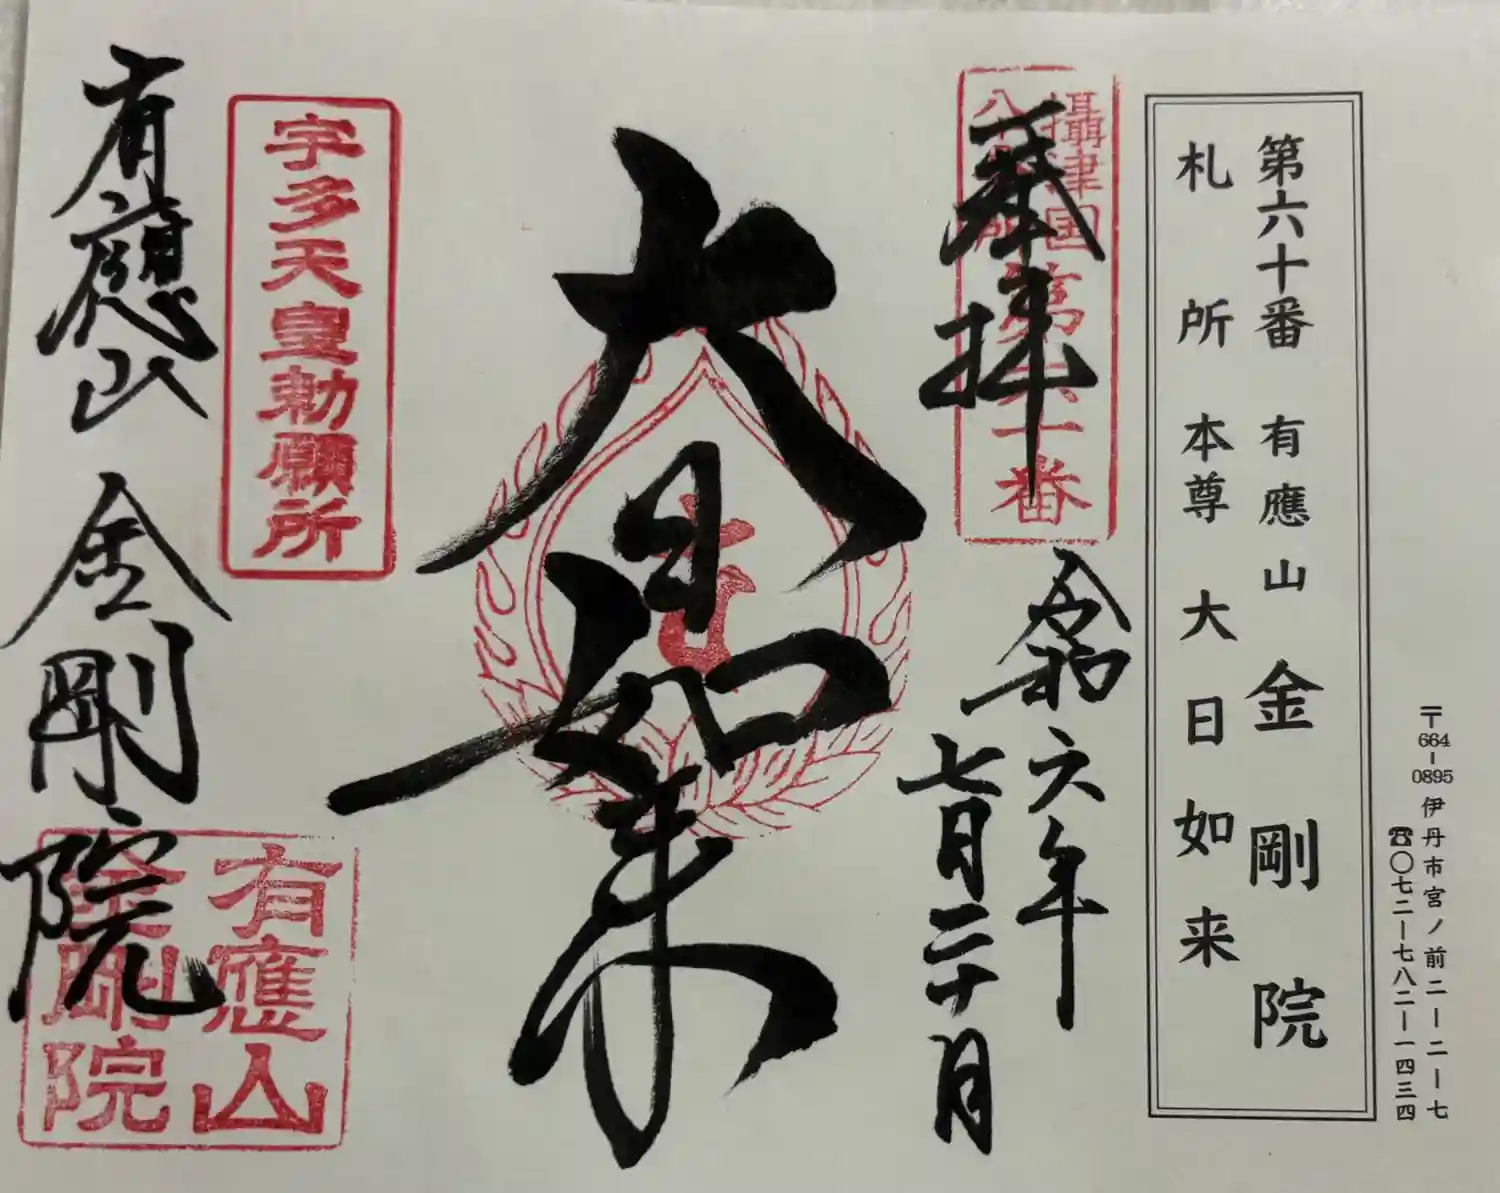 〒664-0895 伊丹市宮ノ前二ー二ー七
☎〇七二ー七八二ー一四三四
第六十番 有應山 金剛院
札所 本尊 大日如来
攝津国
八十八所
第六十番
奉拝
令和六年
七月二十日
大日如来
宇多天皇勅願所
有應山 金剛院
有應山
金剛院